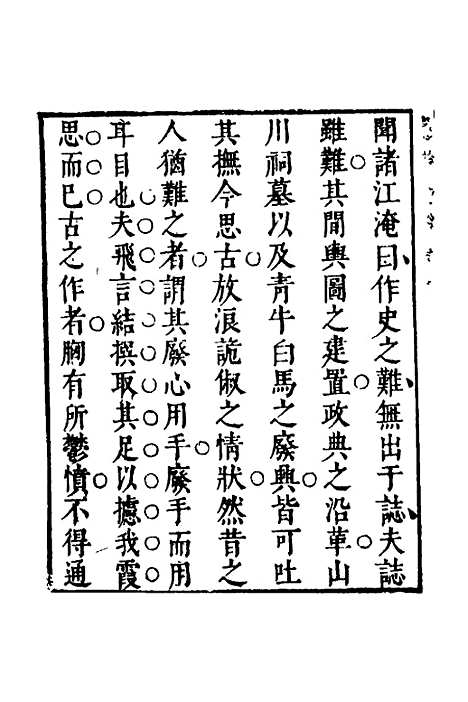 聞諸江淹曰作史之難無出于誌夫誌
雖難其間輿圖之建置政典之沿革山
川祠墓以及青牛白馬之廢興皆可吐
其撫今思古放浪詭俶之情狀然昔之
人猶難之者謂其廢心用手廢手而用
耳目也夫飛言結撰取其足以攄我霞
思而已古之作者胸有所鬱憤不得通